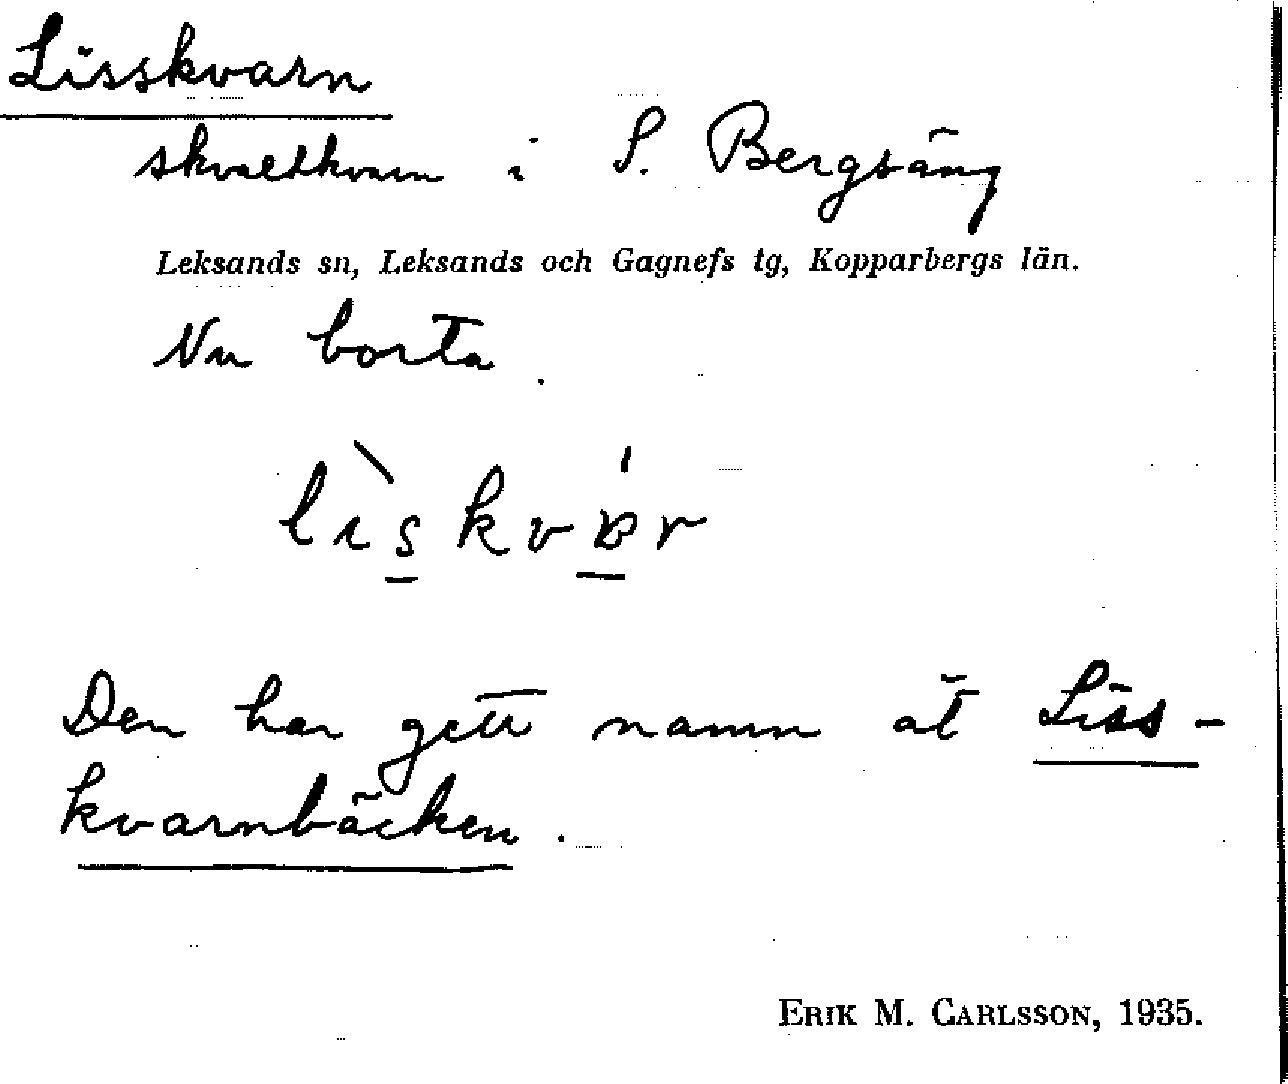 Lisskvarn
skvaltkvarn i S. Bergsäng
Leksands sn, Leksands och Gagnefs tg, Kopparbergs län.
Nu borta.
Den har gett namn åt Liss-
kvarnbäcken.
ERIK M. CARLSSON, 1935.